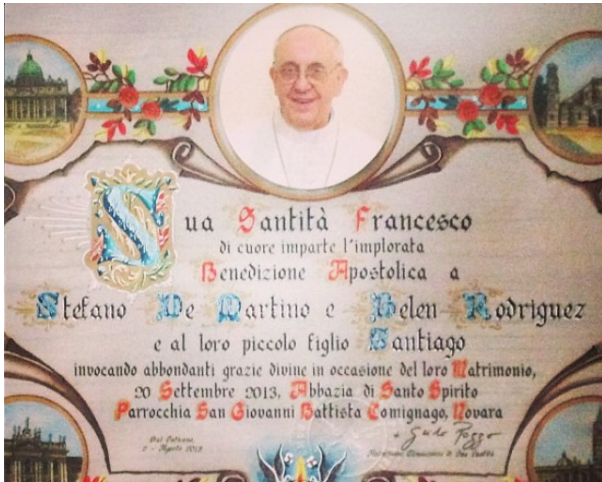 Sua Santità Francesco
di cuore imparte l'implorata
Benedizione Apostolica a
Stefano De Martino e Belen Rodriguez
e al loro piccolo figlio Santiago
invocando abbondanti grazie divine in occasione del loro Matrimonio,
20 Settembre 2013, Abbazia di Santo Spirito
Parrocchia San Giovanni Battista Comignago, Novara
Dal Vaticano,
Agosto 2013
+ Guido Pozzo
Elemosiniere di Sua Santità